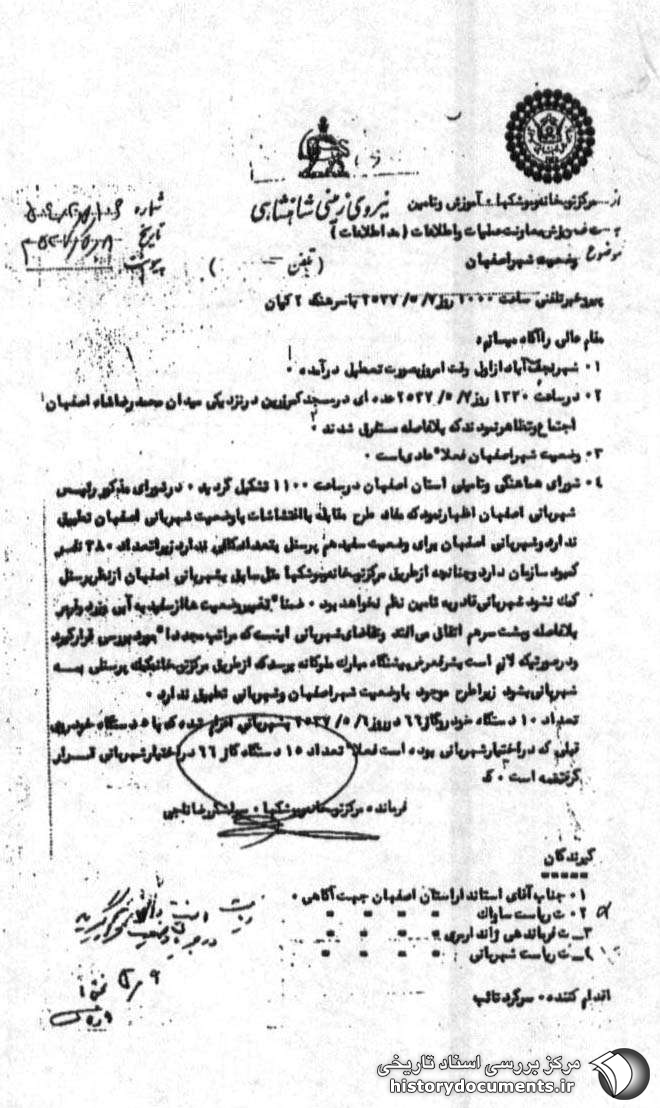 نیروی زمینی شاهنشاهی
از مرکز توپخانه و موشکها - آموزش و تامین
شماره
تاریخ
پیوست
موضوع وضعیت شهر اصفهان
(تلفن )
پیرو خبر تلفنی ساعت ۱۰۰۰ روز ۲۵۳۷/۵/۷ با سرهنگ ۲ کیان
مقام عالی را آگاه میسازد
۱ - شهر نجف آباد از اول وقت امروز بصورت تعطیل درآمده .
۲ - در ساعت ۱۲۳۰ روز ۲۵۳۷/۵/۷ عده ای در مسجد در نزدیکی میدان محمد رضا شاه اصفهان
اجتماع و تظاهر نمودند که بلافاصله متفرق شدند .
۳ - وضعیت شهر اصفهان فعلا" عادی است .
۴ - شورای هماهنگی و تامینی استان اصفهان در ساعت ۱۱۰۰ تشکیل گردید . در شورای مذکور رئیس
شهربانی اصفهان اظهار نمود که مفاد طرح مقابله با اغتشاشات با وضعیت شهربانی اصفهان تطبیق
ندارد و شهربانی اصفهان برای وضعیت سفید هم پرسنل بتعداد کافی ندارد زیرا تعداد ۳۸۰ نفر
کمبود سازمان دارد و چنانچه از طریق مرکز توپخانه و موشکها مثل سابق بشهربانی اصفهان از نظر پرسنل
کمک نشود شهربانی قادر به تامین نظم نخواهد بود . ضمنا" تغییر وضعیت ها از سفید به آبی و زرد و قرمز
بلافاصله و پشت سر هم اتفاق می افتد و تقاضای شهربانی اینست که مراتب مجددا" مورد بررسی قرار گیرد
و در صورتیکه لازم است بشرفعرض پیشگاه مبارک ملوکانه برسد که از طریق مرکز توپخانه کمک پرسنلی بـــه
شهربانی بشود زیرا طرح موجود با وضعیت شهر اصفهان و شهربانی تطبیق ندارد .
تعداد ۱۰ دستگاه خودرو گاز ۶۶ در روز ۲۵۳۷/۵/۶ بشهربانی اعزام شده که با ۵ دستگاه خودروی
قبلی که در اختیار شهربانی بوده است فعلا" تعداد ۱۵ دستگاه گاز ۶۶ در اختیار شهربانی قـــرار
گرفته است .
فرمانده مرکز توپخانه و موشکها - سرلشگر رضا ناجی
گیرندگان
۱ - جناب آقای استاندار استان اصفهان جهت آگاهی .
۲ - ت ریاست ساواک " " " "
۳ - ت فرماندهی ژاندارمری " " "
۴ - ت ریاست شهربانی " " " "
اقدام کننده - سرگرد تائب
مرکز بررسی اسناد تاریخی
historydocuments.ir